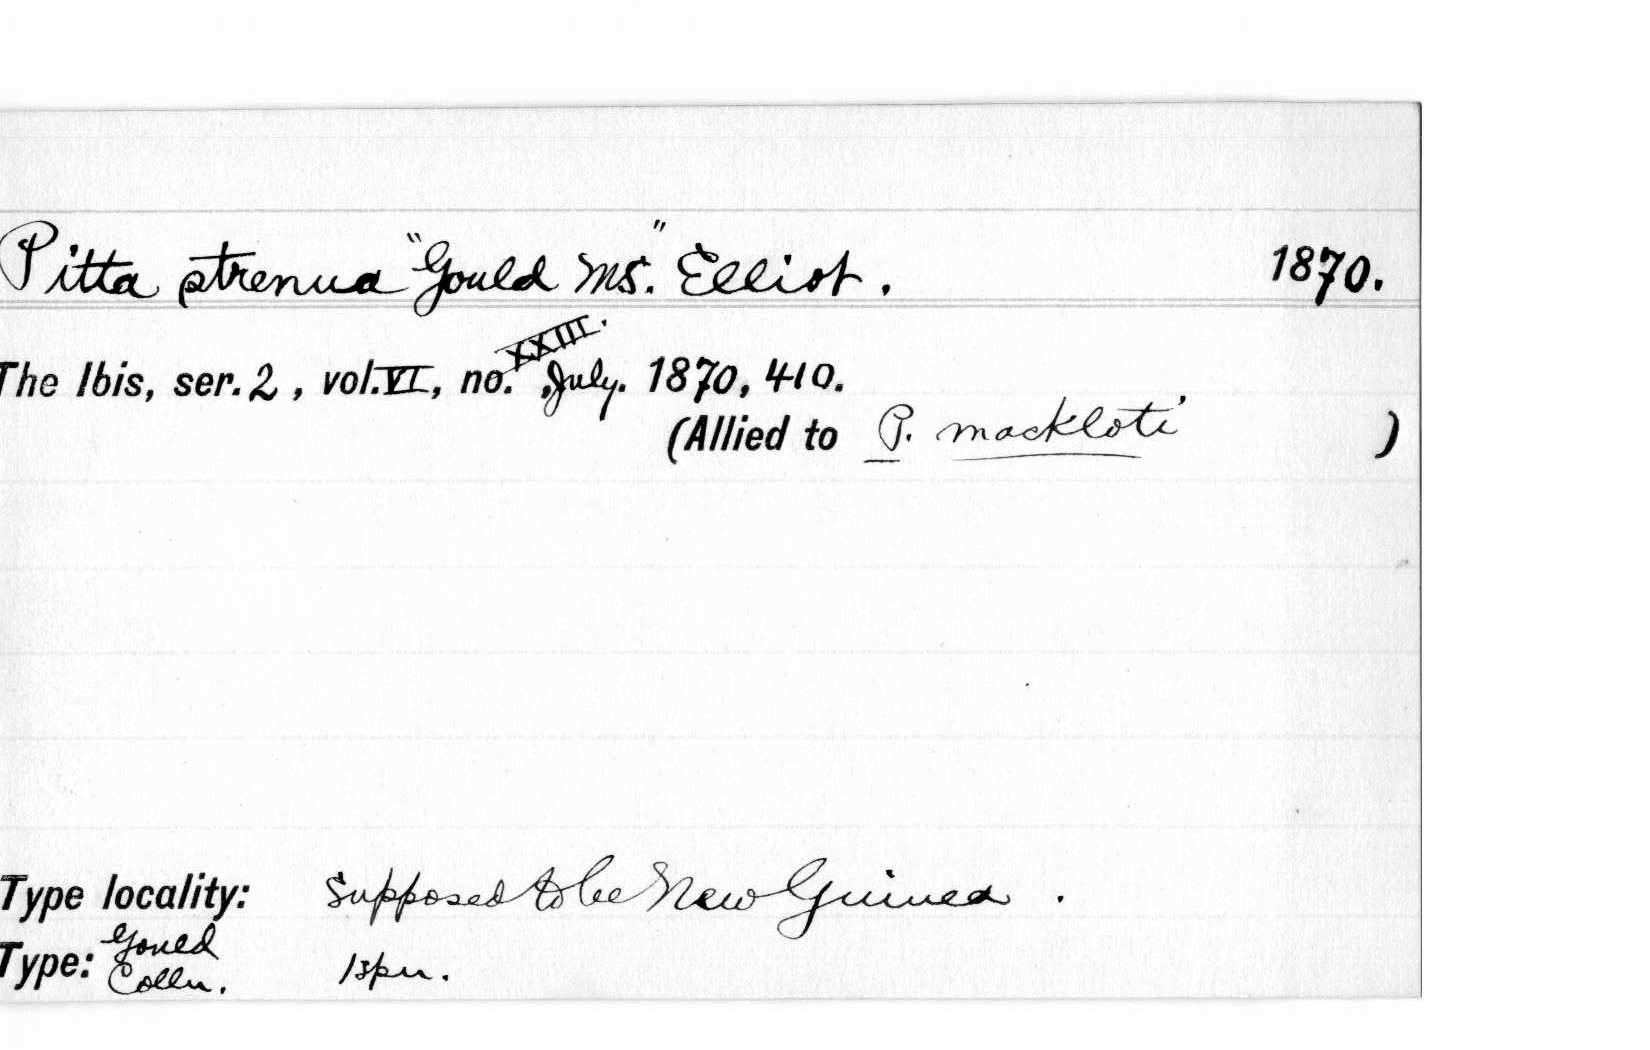 Pitta strenua "Gould MS." Elliot. 1870.
The Ibis, ser. 2, vol. VI, no. XXIII., July. 1870, 410.
(Allied to P. mackloti )
Type locality: Supposed to be New Guinea.
Type: Gould Colln. 1 spn.